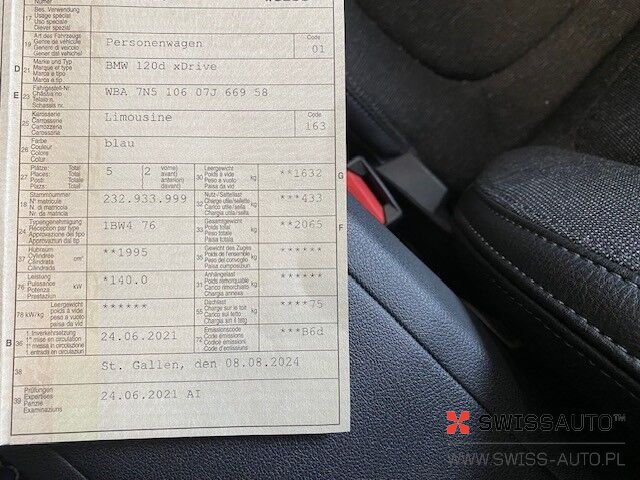 Numer
17 Bes. Verwendung
Usage spécial
Uso speciale
Diever spezial
19 Art des Fahrzeugs Personenwagen Code
Genre de véhicule 01
Genere di veicolo
Gener dal vehichel
D 21 Marke und Typ BMW 120d xDrive
Marque et type
Marca e tipo
Marca e tip
E 23 Fahrgestell-Nr. WBA 7N5 106 07J 669 58
Châssis no
Telaio n.
Schassis nr.
25 Karosserie Limousine Code
Carrosserie 163
Carrozzeria
Carossaria
26 Farbe blau
Couleur
Colore
Colur
27 Plätze: Total 5 2 vorne) 30 Leergewicht kg **1632 G
Places: Total avant) Poids à vide
Posti: Totale anterior.) Peso a vuoto
Plazs: Total davant) Paisa da vid
18 Stammnummer 232.933.999 32 Nutz-/Sattellast kg ***433
N° matricule Charge utile/sellette
N. di matricola Carico utile/sella
Nr. da matricla Chargia utila/sella
24 Typengenehmigung 1BW4 76 33 Gesamtgewicht kg **2065 F
Réception par type Poids total
Approvazione del tipo Peso totale
Approvaziun dal tip Paisa totala
37 Hubraum cm³ **1995 35 Gewicht des Zuges kg ******
Cylindrée Poids de l'ensemble
Cilindrata Peso del convoglio
Cilindrada Paisa cumposiziun
76 Leistung kW *140.0 31 Anhängelast kg ******
Puissance Poids remorquable
Potenza Carico rimorchiato
Prestaziun Chargia annexa
78 kW/kg Leergewicht ****** 55 Dachlast kg ****75
poids à vide Charge sur le toit
peso a vuoto Carico sul tetto
paisa da vid Chargia sin il tetg
B 36 1. Inverkehrsetzung 24.06.2021 72 Emissionscode ***B6d
1re mise en circulation Code émissions
1a messa in circolazione Codice emissioni
1. entrada en circulaziun Code d'emissiuns
38 St. Gallen, den 08.08.2024
39 Prüfungen 24.06.2021 AI
Expertises
Perizie
Examinaziuns
SWISSAUTO™
WWW.SWISS-AUTO.PL